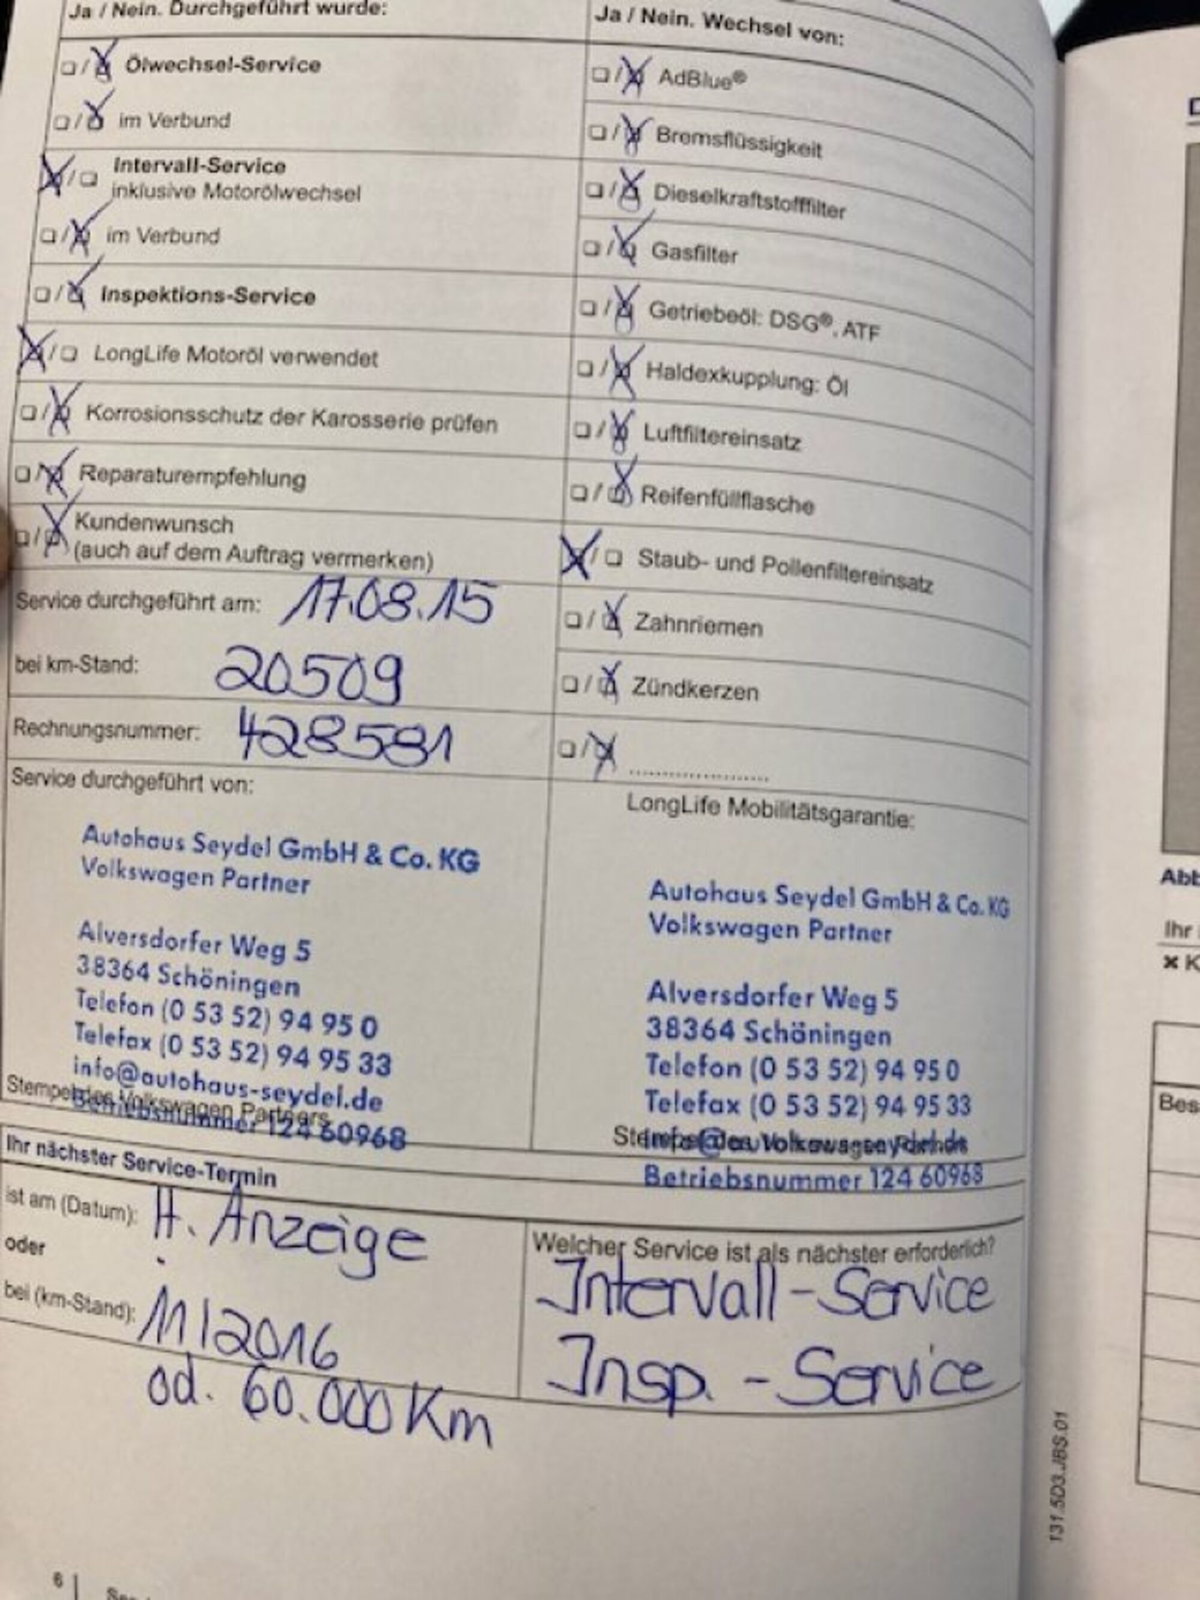 Ja / Nein. Durchgeführt wurde:
Ölwechsel-Service
im Verbund
Intervall-Service
inklusive Motorölwechsel
im Verbund
Inspektions-Service
LongLife Motoröl verwendet
Korrosionsschutz der Karosserie prüfen
Reparaturempfehlung
Kundenwunsch
(auch auf dem Auftrag vermerken)
Service durchgeführt am: 17.08.15
bei km-Stand: 20509
Rechnungsnummer: 428581
Service durchgeführt von:
Autohaus Seydel GmbH & Co. KG
Volkswagen Partner
Alversdorfer Weg 5
38364 Schöningen
Telefon (0 53 52) 94 95 0
Telefax (0 53 52) 94 95 33
info@autohaus-seydel.de
Stempel des Volkswagen Partners
Betriebsnummer 124 60968
Ja / Nein. Wechsel von:
AdBlue®
Bremsflüssigkeit
Dieselkraftstofffilter
Gasfilter
Getriebeöl: DSG®, ATF
Haldexkupplung: Öl
Luftfiltereinsatz
Reifenfüllflasche
Staub- und Pollenfiltereinsatz
Zahnriemen
Zündkerzen
....................
LongLife Mobilitätsgarantie:
Autohaus Seydel GmbH & Co. KG
Volkswagen Partner
Alversdorfer Weg 5
38364 Schöningen
Telefon (0 53 52) 94 95 0
Telefax (0 53 52) 94 95 33
info@autohaus-seydel.de
Stempel des Volkswagen Partners
Betriebsnummer 124 60968
Ihr nächster Service-Termin
ist am (Datum): lt. Anzeige
oder
bei (km-Stand): 11/2016
od. 60.000 Km
Welcher Service ist als nächster erforderlich?
Intervall-Service
Insp. - Service
131.5D3.JBS.01
6
Abb
Ihr
Bes